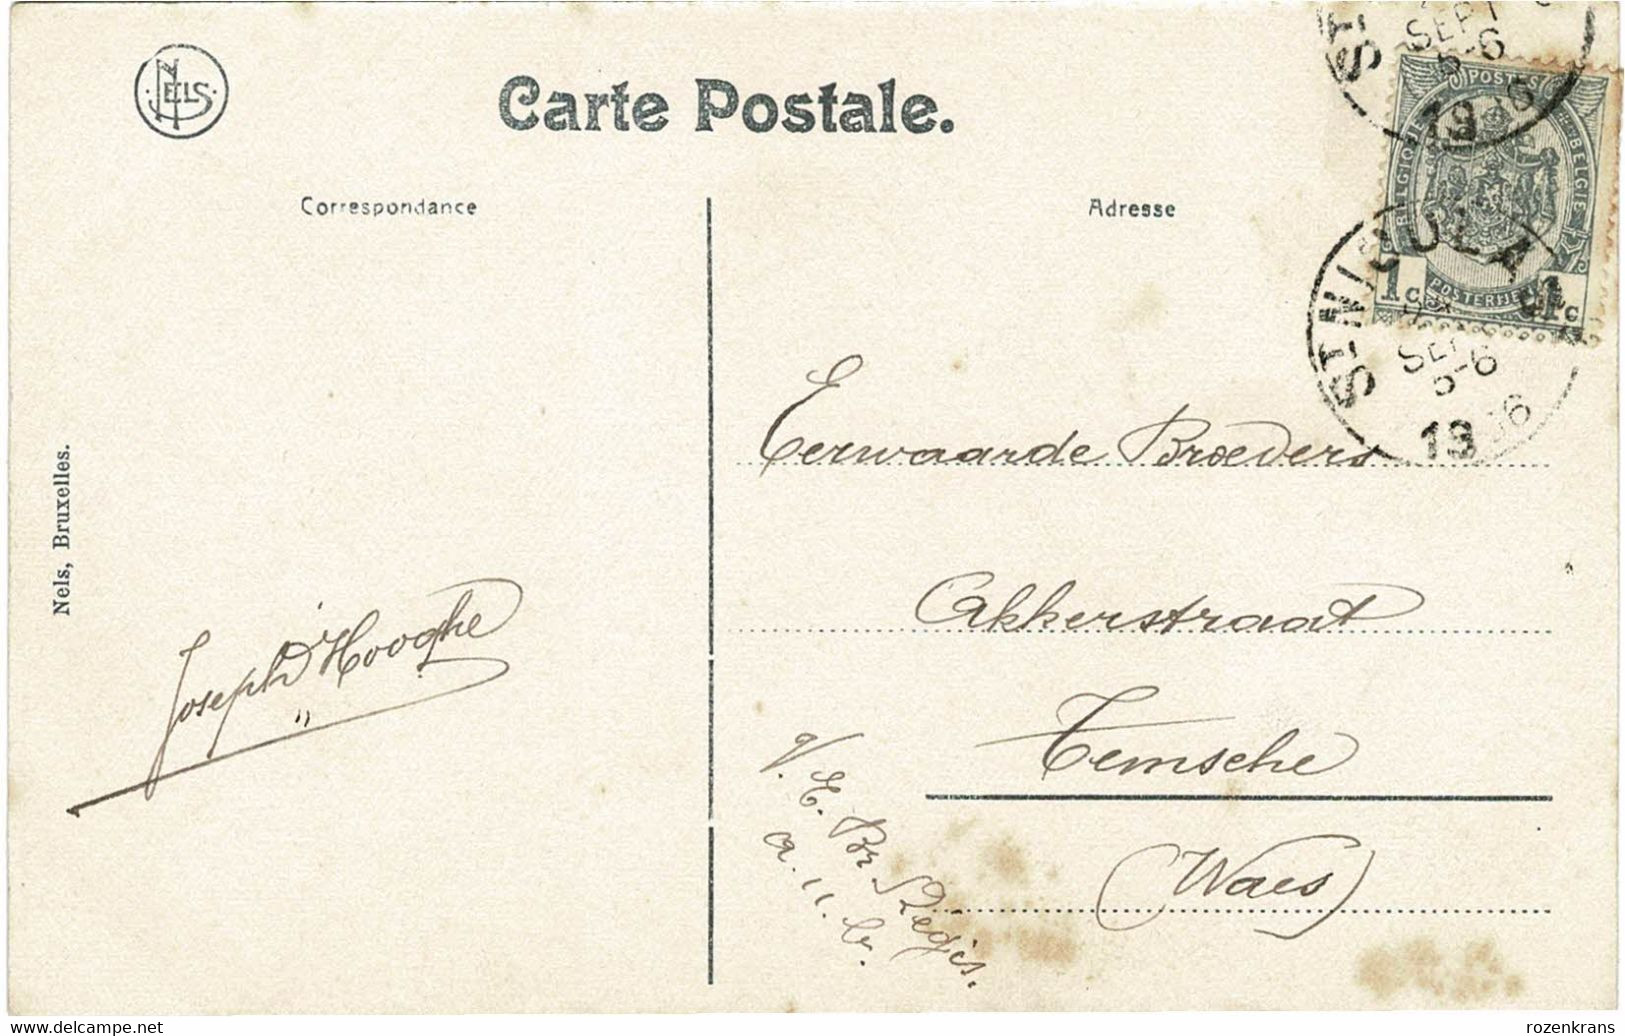 NELS
Carte Postale.
Correspondance
Adresse
POSTES
BELGIQUE
BELGIE
POSTERIJEN
1c
1c
SEPT
5-6
19
ST-NICOLA
SEP
5-6
19
Eerwaarde Broeders
Akkerstraat
Temsche
(Waes)
V. E. Br Regis.
a. u. b.
Joseph D'Hooghe
Nels, Bruxelles.
www.delcampe.net
rozenkrans